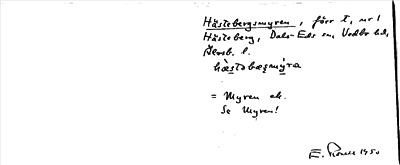 Hästebergsmyren, förr t. nr 1
Hästeberg, Dals-Eds sn, Vedbo hd,
Älvsb. l.
hæ̀stəbæṣmy̆ra
= Myren ek.
Se Myren!
E. 1950